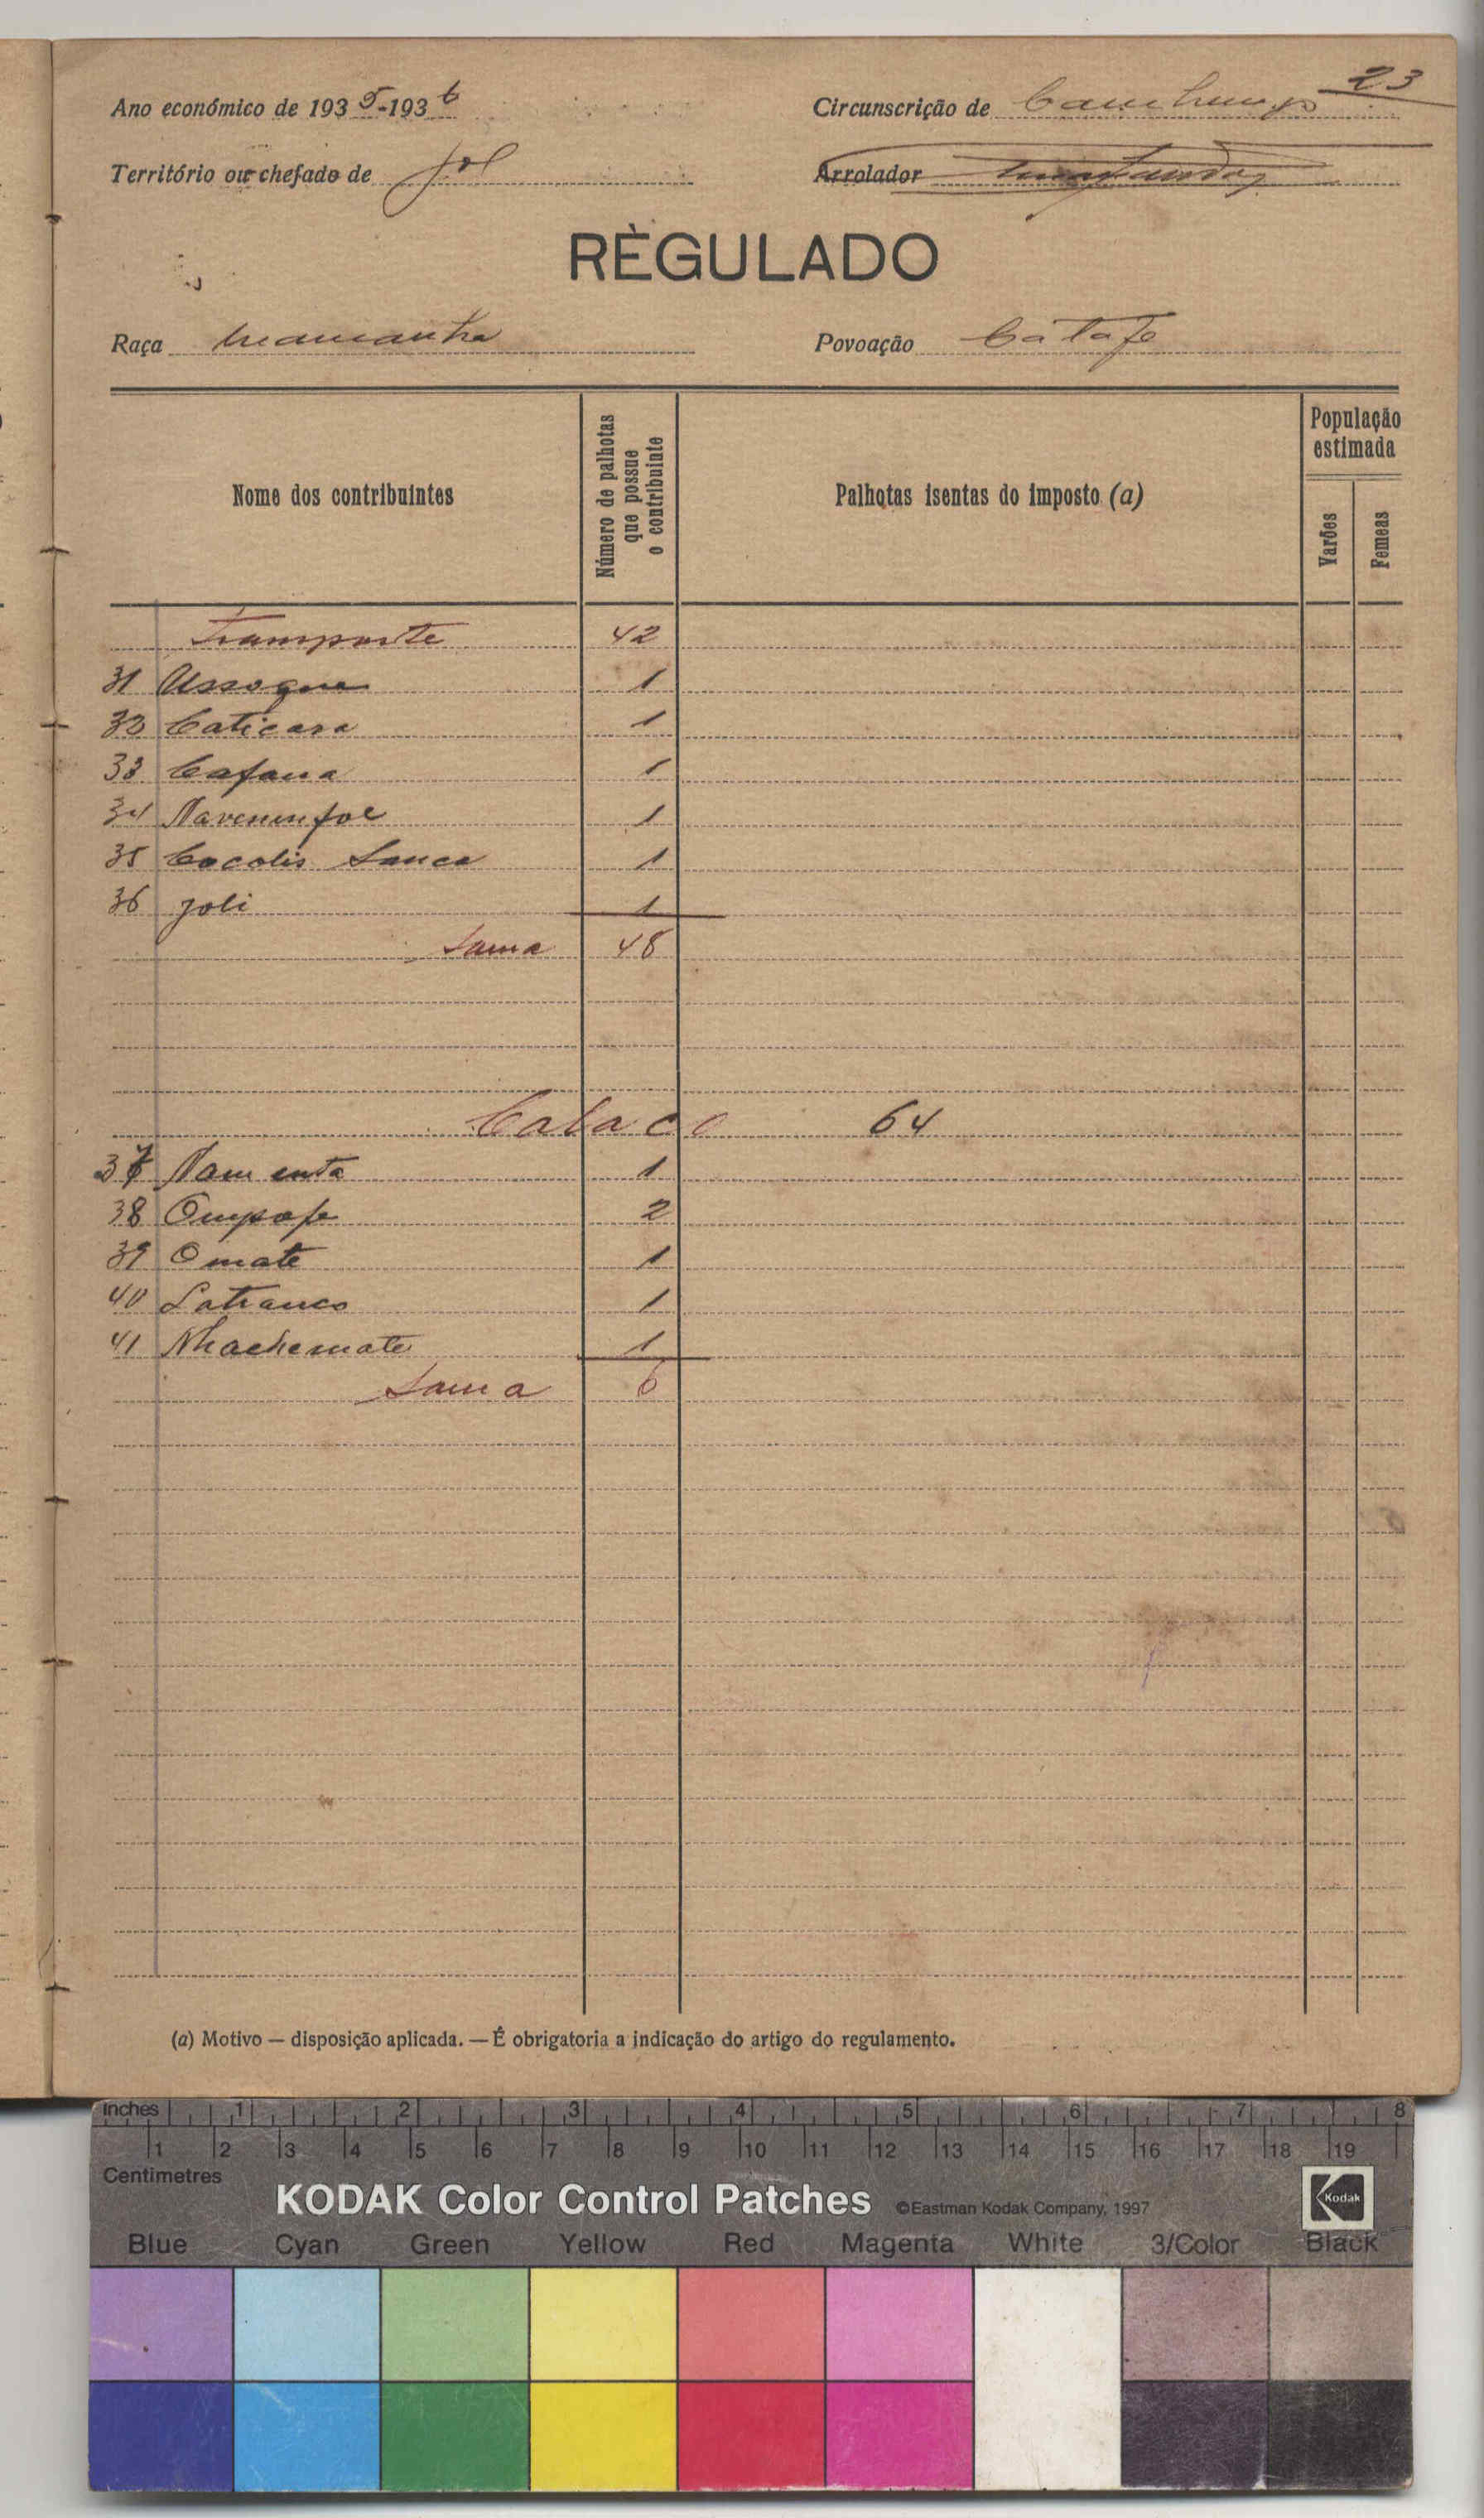 23
Ano económico de 1935-1936
Circunscrição de
Território ou chefado de Jol
Arrolador
RÈGULADO
Raça Mamanha
Povoação Cátafe
Nome dos contribuintes
Número de palhotas que possue o contribuinte
Palhotas isentas do imposto (a)
População estimada
Varões
Femeas
Transporte 42
31 Assoque 1
32 Caticasa 1
33 Cafana 1
34 1
35 Cocolis Sanca 1
36 Joli 1
Soma 48
64
37 Namenta 1
38 Ompafe 2
39 Omate 1
40 Latranco 1
41 Nhachemate 1
Soma 6
(a) Motivo — disposição aplicada. — É obrigatoria a indicação do artigo do regulamento.
inches 1 2 3 4 5 6 7 8
1 2 3 4 5 6 7 8 9 10 11 12 13 14 15 16 17 18 19
Centimetres
KODAK Color Control Patches ©Eastman Kodak Company, 1997
Kodak
Blue Cyan Green Yellow Red Magenta White 3/Color Black